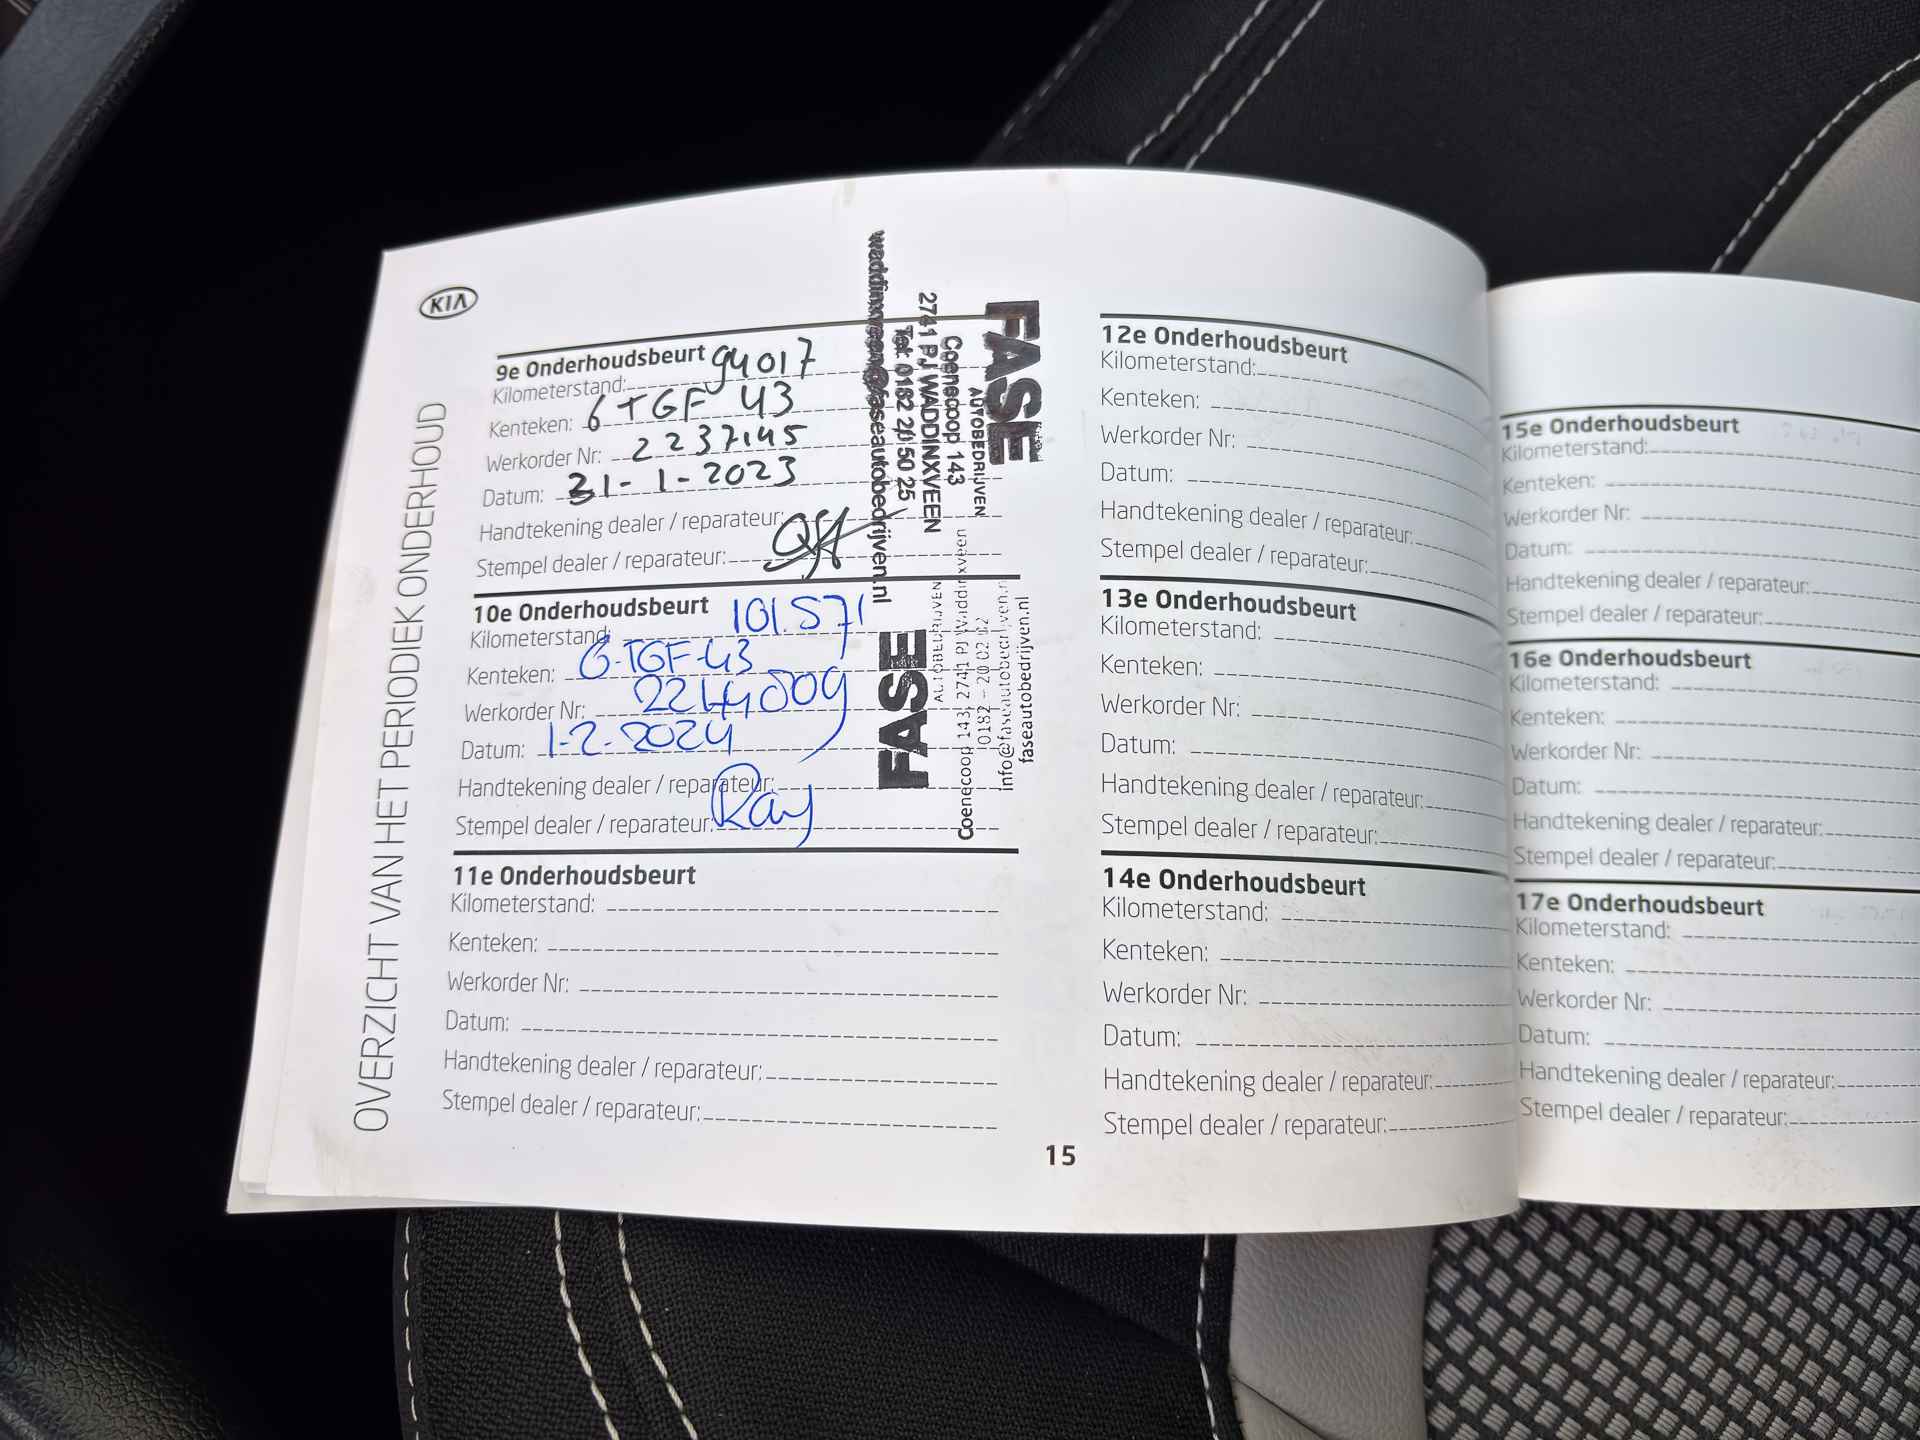 KIA
OVERZICHT VAN HET PERIODIEK ONDERHOUD
9e Onderhoudsbeurt
Kilometerstand: 94017
Kenteken: 6 TGF 43
Werkorder Nr: 2237145
Datum: 31-1-2023
Handtekening dealer / reparateur:
Stempel dealer / reparateur:
FASE
AUTOBEDRIJVEN
Coenecoop 143
2741 PJ WADDINXVEEN
Tel. 0182 20 50 25
waddinxveen@faseautobedrijven.nl
10e Onderhoudsbeurt
Kilometerstand: 101.571
Kenteken: 6-TGF-43
Werkorder Nr: 2244009
Datum: 1-2-2024
Handtekening dealer / reparateur: Ray
Stempel dealer / reparateur:
FASE
AUTOBEDRIJVEN
Coenecoop 143, 2741 PJ Waddinxveen
0182 - 20 02 02
info@faseautobedrijven.nl
faseautobedrijven.nl
11e Onderhoudsbeurt
Kilometerstand:
Kenteken:
Werkorder Nr:
Datum:
Handtekening dealer / reparateur:
Stempel dealer / reparateur:
15
12e Onderhoudsbeurt
Kilometerstand:
Kenteken:
Werkorder Nr:
Datum:
Handtekening dealer / reparateur:
Stempel dealer / reparateur:
13e Onderhoudsbeurt
Kilometerstand:
Kenteken:
Werkorder Nr:
Datum:
Handtekening dealer / reparateur:
Stempel dealer / reparateur:
14e Onderhoudsbeurt
Kilometerstand:
Kenteken:
Werkorder Nr:
Datum:
Handtekening dealer / reparateur:
Stempel dealer / reparateur:
15e Onderhoudsbeurt
Kilometerstand:
Kenteken:
Werkorder Nr:
Datum:
Handtekening dealer / reparateur:
Stempel dealer / reparateur:
16e Onderhoudsbeurt
Kilometerstand:
Kenteken:
Werkorder Nr:
Datum:
Handtekening dealer / reparateur:
Stempel dealer / reparateur:
17e Onderhoudsbeurt
Kilometerstand:
Kenteken:
Werkorder Nr:
Datum:
Handtekening dealer / reparateur:
Stempel dealer / reparateur: